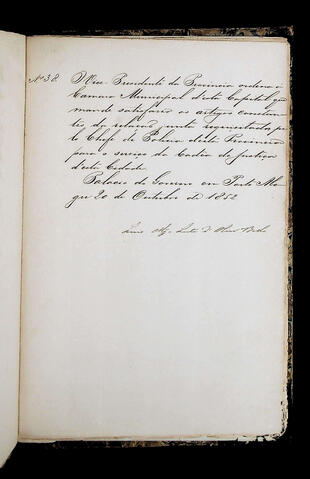 Nº 38 O Vice-Presidente da Provincia ordena á
Camara Municipal d'esta Capital que
mande satisfazer os artigos constan-
tes da relação junta requisitados pe-
lo Chefe de Policia desta Provincia
para o serviço da Cadeia de Justiça
d'esta Cidade.
Palacio do Governo em Porto Ale-
gre 20 de Outubro de 1852
Luis